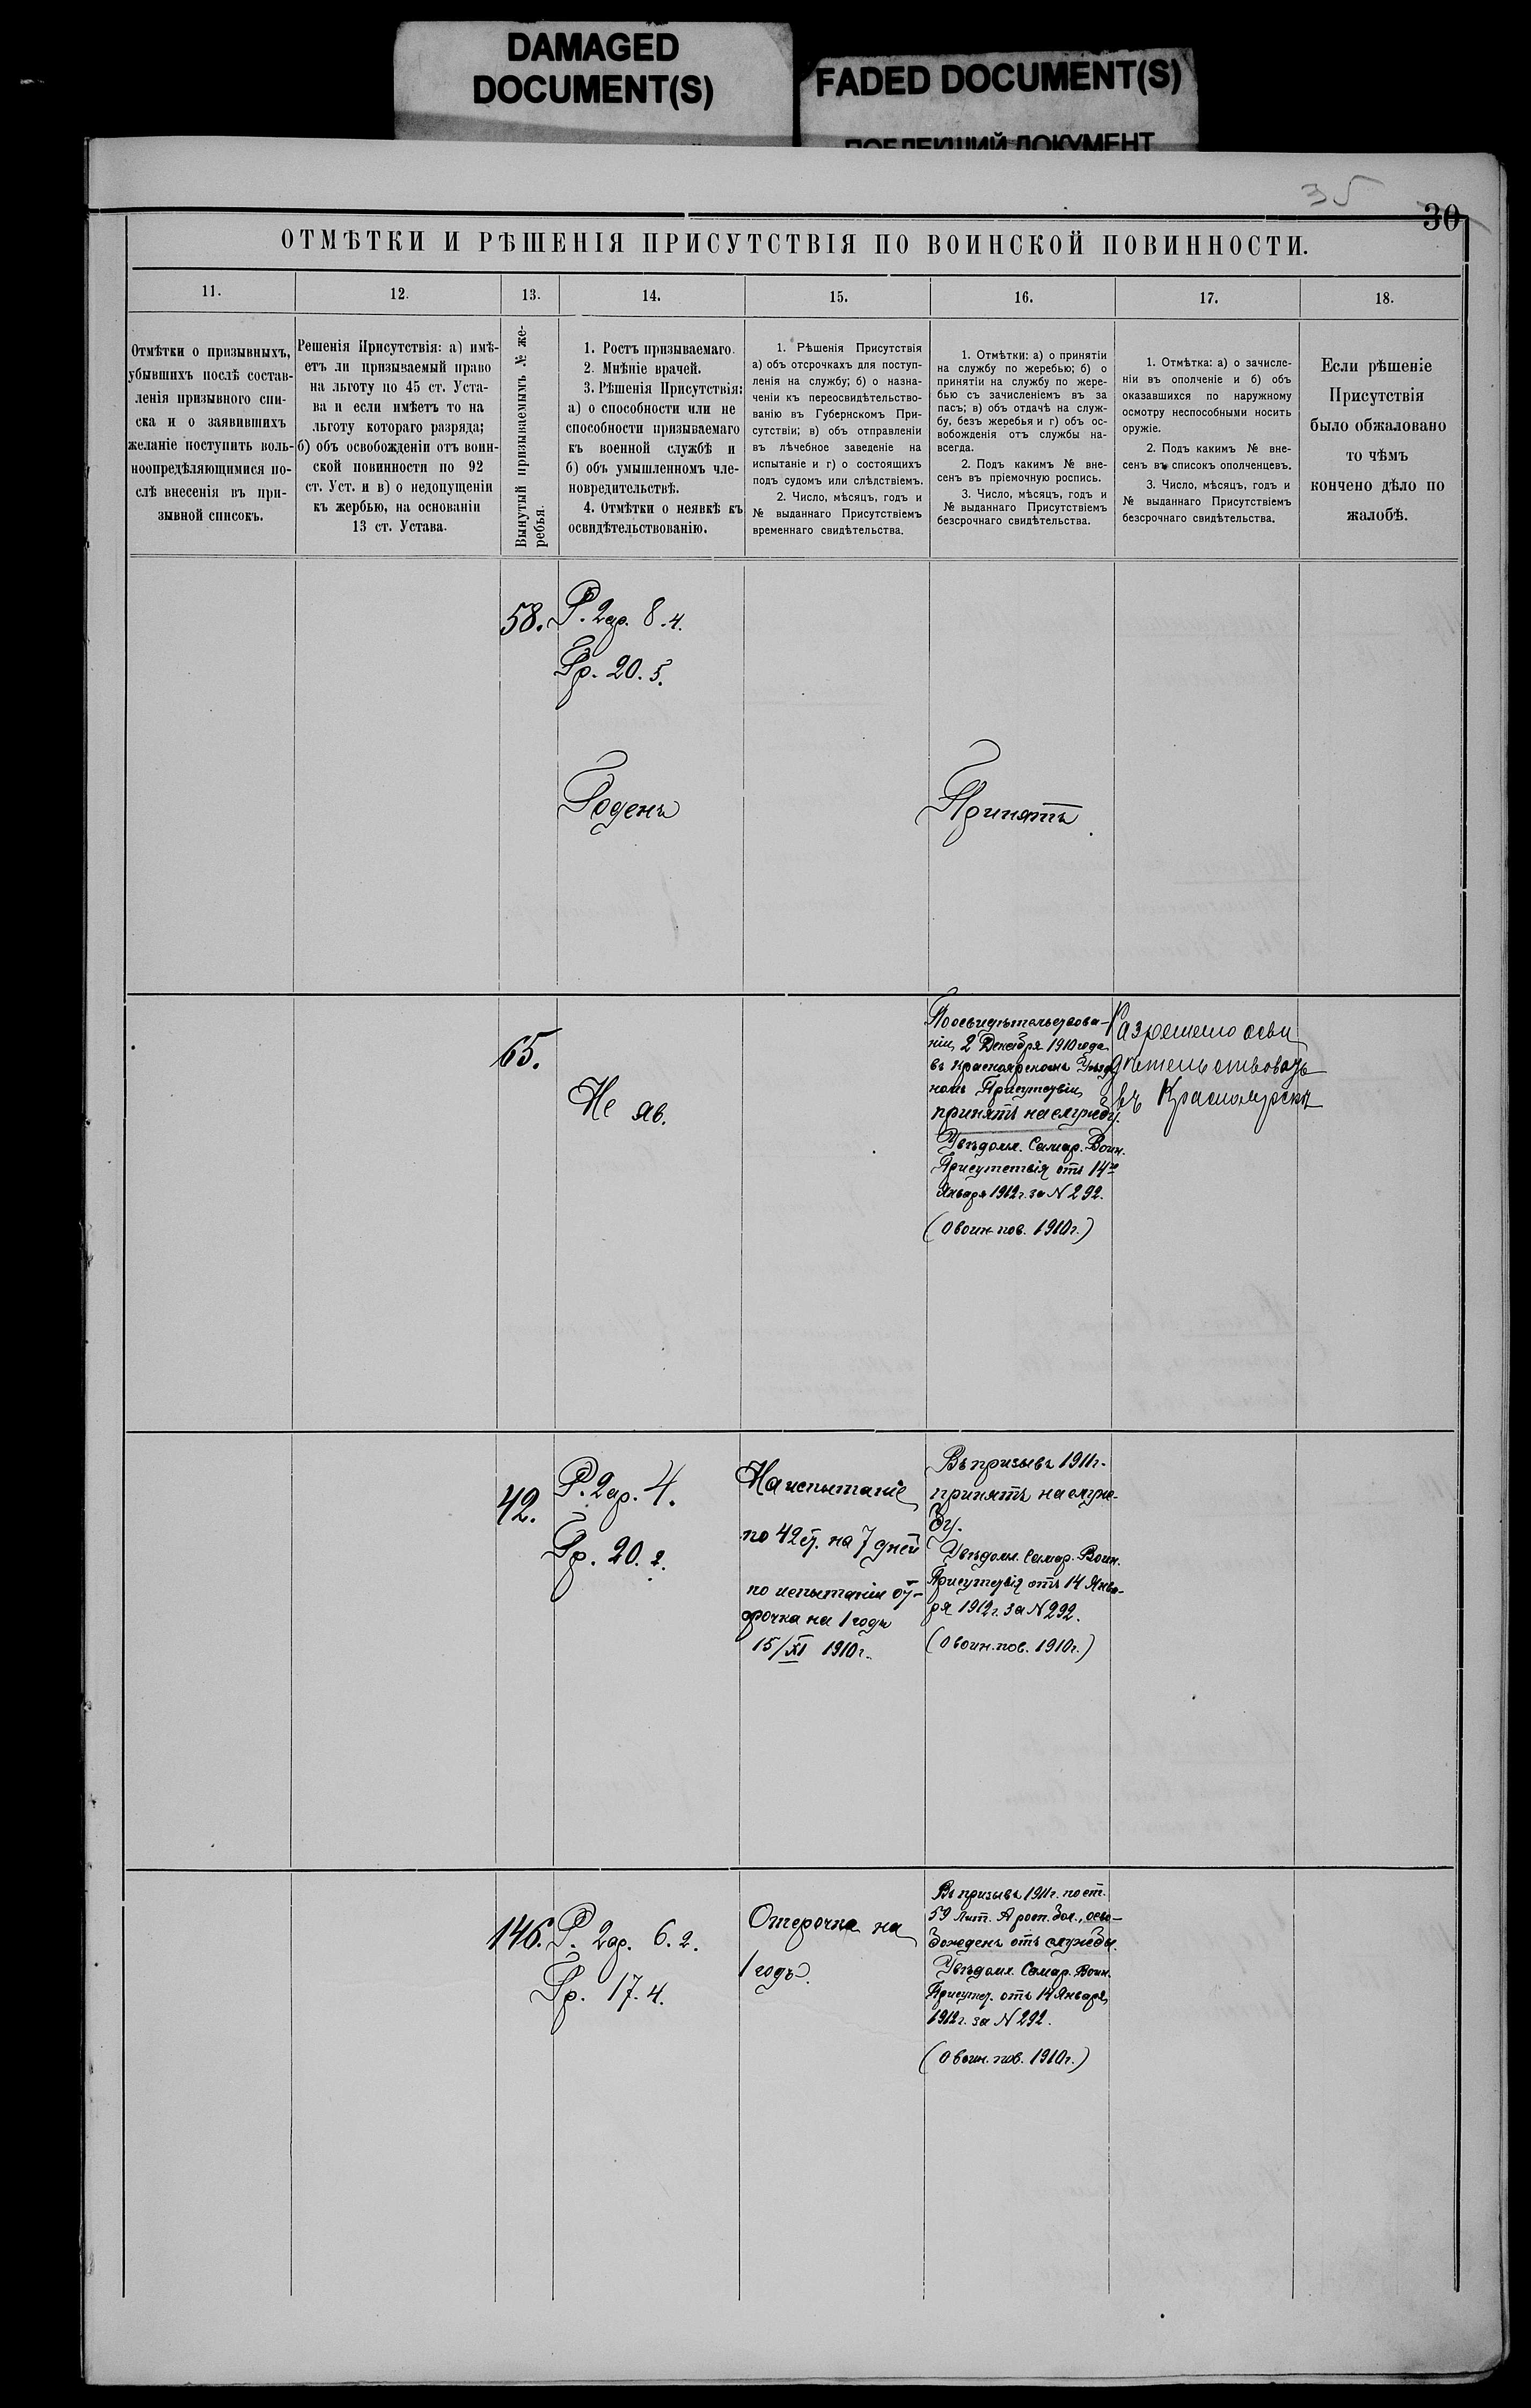 DAMAGED
DOCUMENT(S)
FADED DOCUMENT(S)
ПОБЛЕКШИЙ ДОКУМЕНТ
35
30
ОТМѢТКИ И РѢШЕНІЯ ПРИСУТСТВІЯ ПО ВОИНСКОЙ ПОВИННОСТИ.
11.
Отмѣтки о призывныхъ,
убывшихъ послѣ состав-
ленія призывного спи-
ска и о заявившихъ
желаніе поступить воль-
ноопредѣляющимися по-
слѣ внесенія въ при-
зывной списокъ.
12.
Решенія Присутствія: а) имѣ-
етъ ли призываемый право
на льготу по 45 ст. Уста-
ва и если имѣетъ то на
льготу котораго разряда;
б) объ освобожденіи отъ воин-
ской повинности по 92
ст. Уст. и в) о недопущеніи
къ жербью, на основаніи
13 ст. Устава.
13.
Вынутый призываемымъ № же-
ребья.
14.
1. Ростъ призываемаго.
2. Мнѣніе врачей.
3. Рѣшенія Присутствія:
а) о способности или не
способности призываемаго
къ военной службѣ и
б) объ умышленномъ чле-
новредительствѣ.
4. Отмѣтки о неявкѣ къ
освидѣтельствованію.
15.
1. Рѣшенія Присутствія
а) объ отсрочкахъ для поступ-
ленія на службу; б) о назна-
ченіи къ переосвидѣтельство-
ванію въ Губернскомъ При-
сутствіи; в) объ отправленіи
въ лѣчебное заведеніе на
испытаніе и г) о состоящихъ
подъ судомъ или слѣдствіемъ.
2. Число, мѣсяцъ, годъ и
№ выданнаго Присутствіемъ
временнаго свидѣтельства.
16.
1. Отмѣтки: а) о принятіи
на службу по жеребью; б) о
принятіи на службу по жере-
бью съ зачисленіемъ въ за
пасъ; в) объ отдачѣ на служ-
бу, безъ жеребья и г) объ ос-
вобожденія отъ службы на-
всегда.
2. Подъ какимъ № вне-
сенъ въ пріемочную роспись.
3. Число, мѣсяцъ, годъ и
№ выданнаго Присутствіемъ
безсрочнаго свидѣтельства.
17.
1. Отмѣтка: а) о зачисле-
ніи въ ополченіе и б) объ
оказавшихся по наружному
осмотру неспособными носить
оружіе.
2. Подъ какимъ № вне-
сенъ въ списокъ ополченцевъ.
3. Число, мѣсяцъ, годъ и
№ выданнаго Присутствіемъ
безсрочнаго свидѣтельства.
18.
Если рѣшеніе
Присутствія
было обжаловано
то чѣмъ
кончено дѣло по
жалобѣ.
58.
Р. 2ар. 8.4.
Гр. 20.5.
Годенъ
Принятъ.
65.
Не яв.
По освидѣтельствова-
ніи, 2 Декабря 1910 года
въ Красноярскомъ Уѣзд
номъ Присутствіи,
принятъ на службу.
Увѣдомл. Самар. Воин.
Присутствія отъ 14го
Января 1912 г. за N 292.
(О воин. пов. 1910 г.)
Разрешено осви
дѣтельствовать
въ Красноярскѣ
42.
Р. 2ар. 4.
Гр. 20.2.
На испытаніе
по 42 ст. на 7 дней
по испытаніи от-
срочка на 1 годъ
15/XI 1910 г.
Въ призывъ 1911 г.
принятъ на служ-
бу.
Увѣдомл. Самар. Воин.
Присутствія отъ 14 Янва-
ря 1912 г. за N 292.
(О воин. пов. 1910 г.)
146.
Р. 2ар. 6.2.
Гр. 17.4.
Отсрочка на
1 годъ.
Въ призывъ 1911 г. по ст.
59 Лит. А росп. бол., осво-
божденъ отъ службы.
Увѣдомл. Самар. Воин.
Присутст. отъ 14 Января
1912 г. за N 292.
(О воин. пов. 1910 г.)